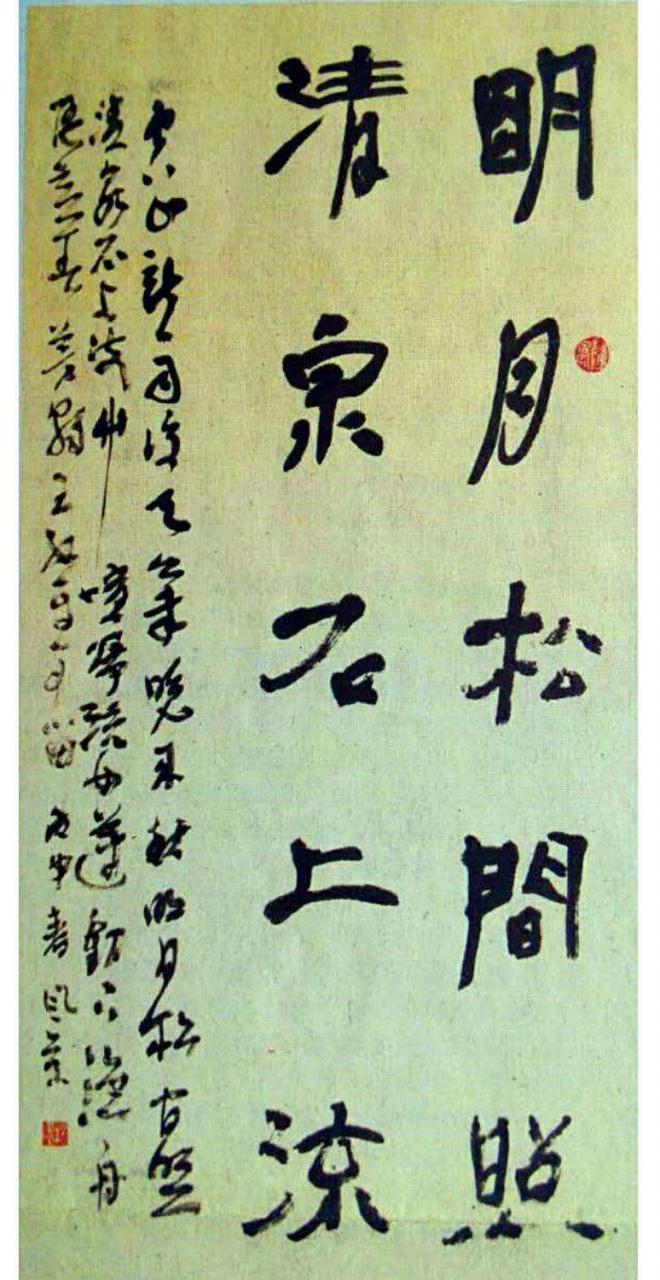 明月松間照
清泉石上流
空山新雨後天氣晚來秋明月松間照
清泉石上流竹喧歸浣女蓮動下漁舟
隨意春芳歇王孫自可留